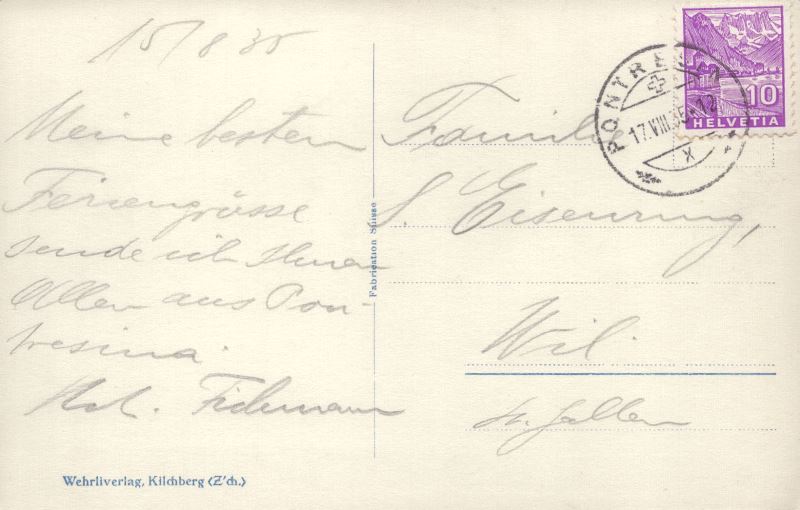 15/8 35
Meine besten
Feriengrüsse
sende ich Ihnen
Allen aus Pon-
tresina.
Familie
S. Eisenring,
Wil.
St. Gallen
PONTRESINA
17.VIII.35.12
X
10
HELVETIA
Fabrication Suisse
Wehrliverlag, Kilchberg (Z'ch.)